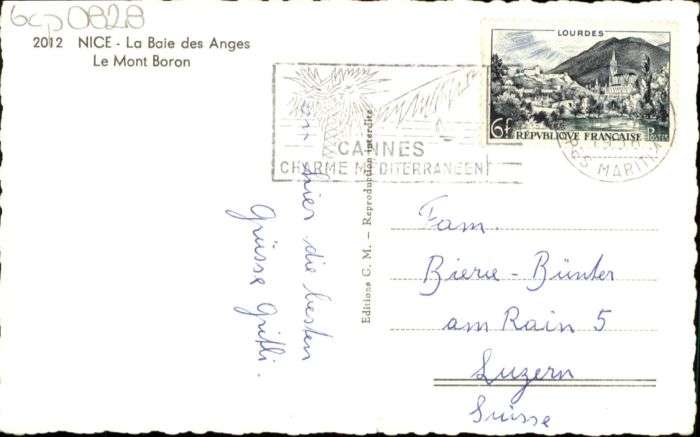 bcp0828
2012 NICE - La Baie des Anges
Le Mont Boron
LOURDES
6f RÉPUBLIQUE FRANÇAISE Postes
CANNES
CHARME MEDITERRANEEN
MARITIM
Editions C. M. — Reproduction interdite
Von hier die besten
Grüsse Gritli.
Fam.
Bierie-Bünter
am Rain 5
Luzern
Suisse